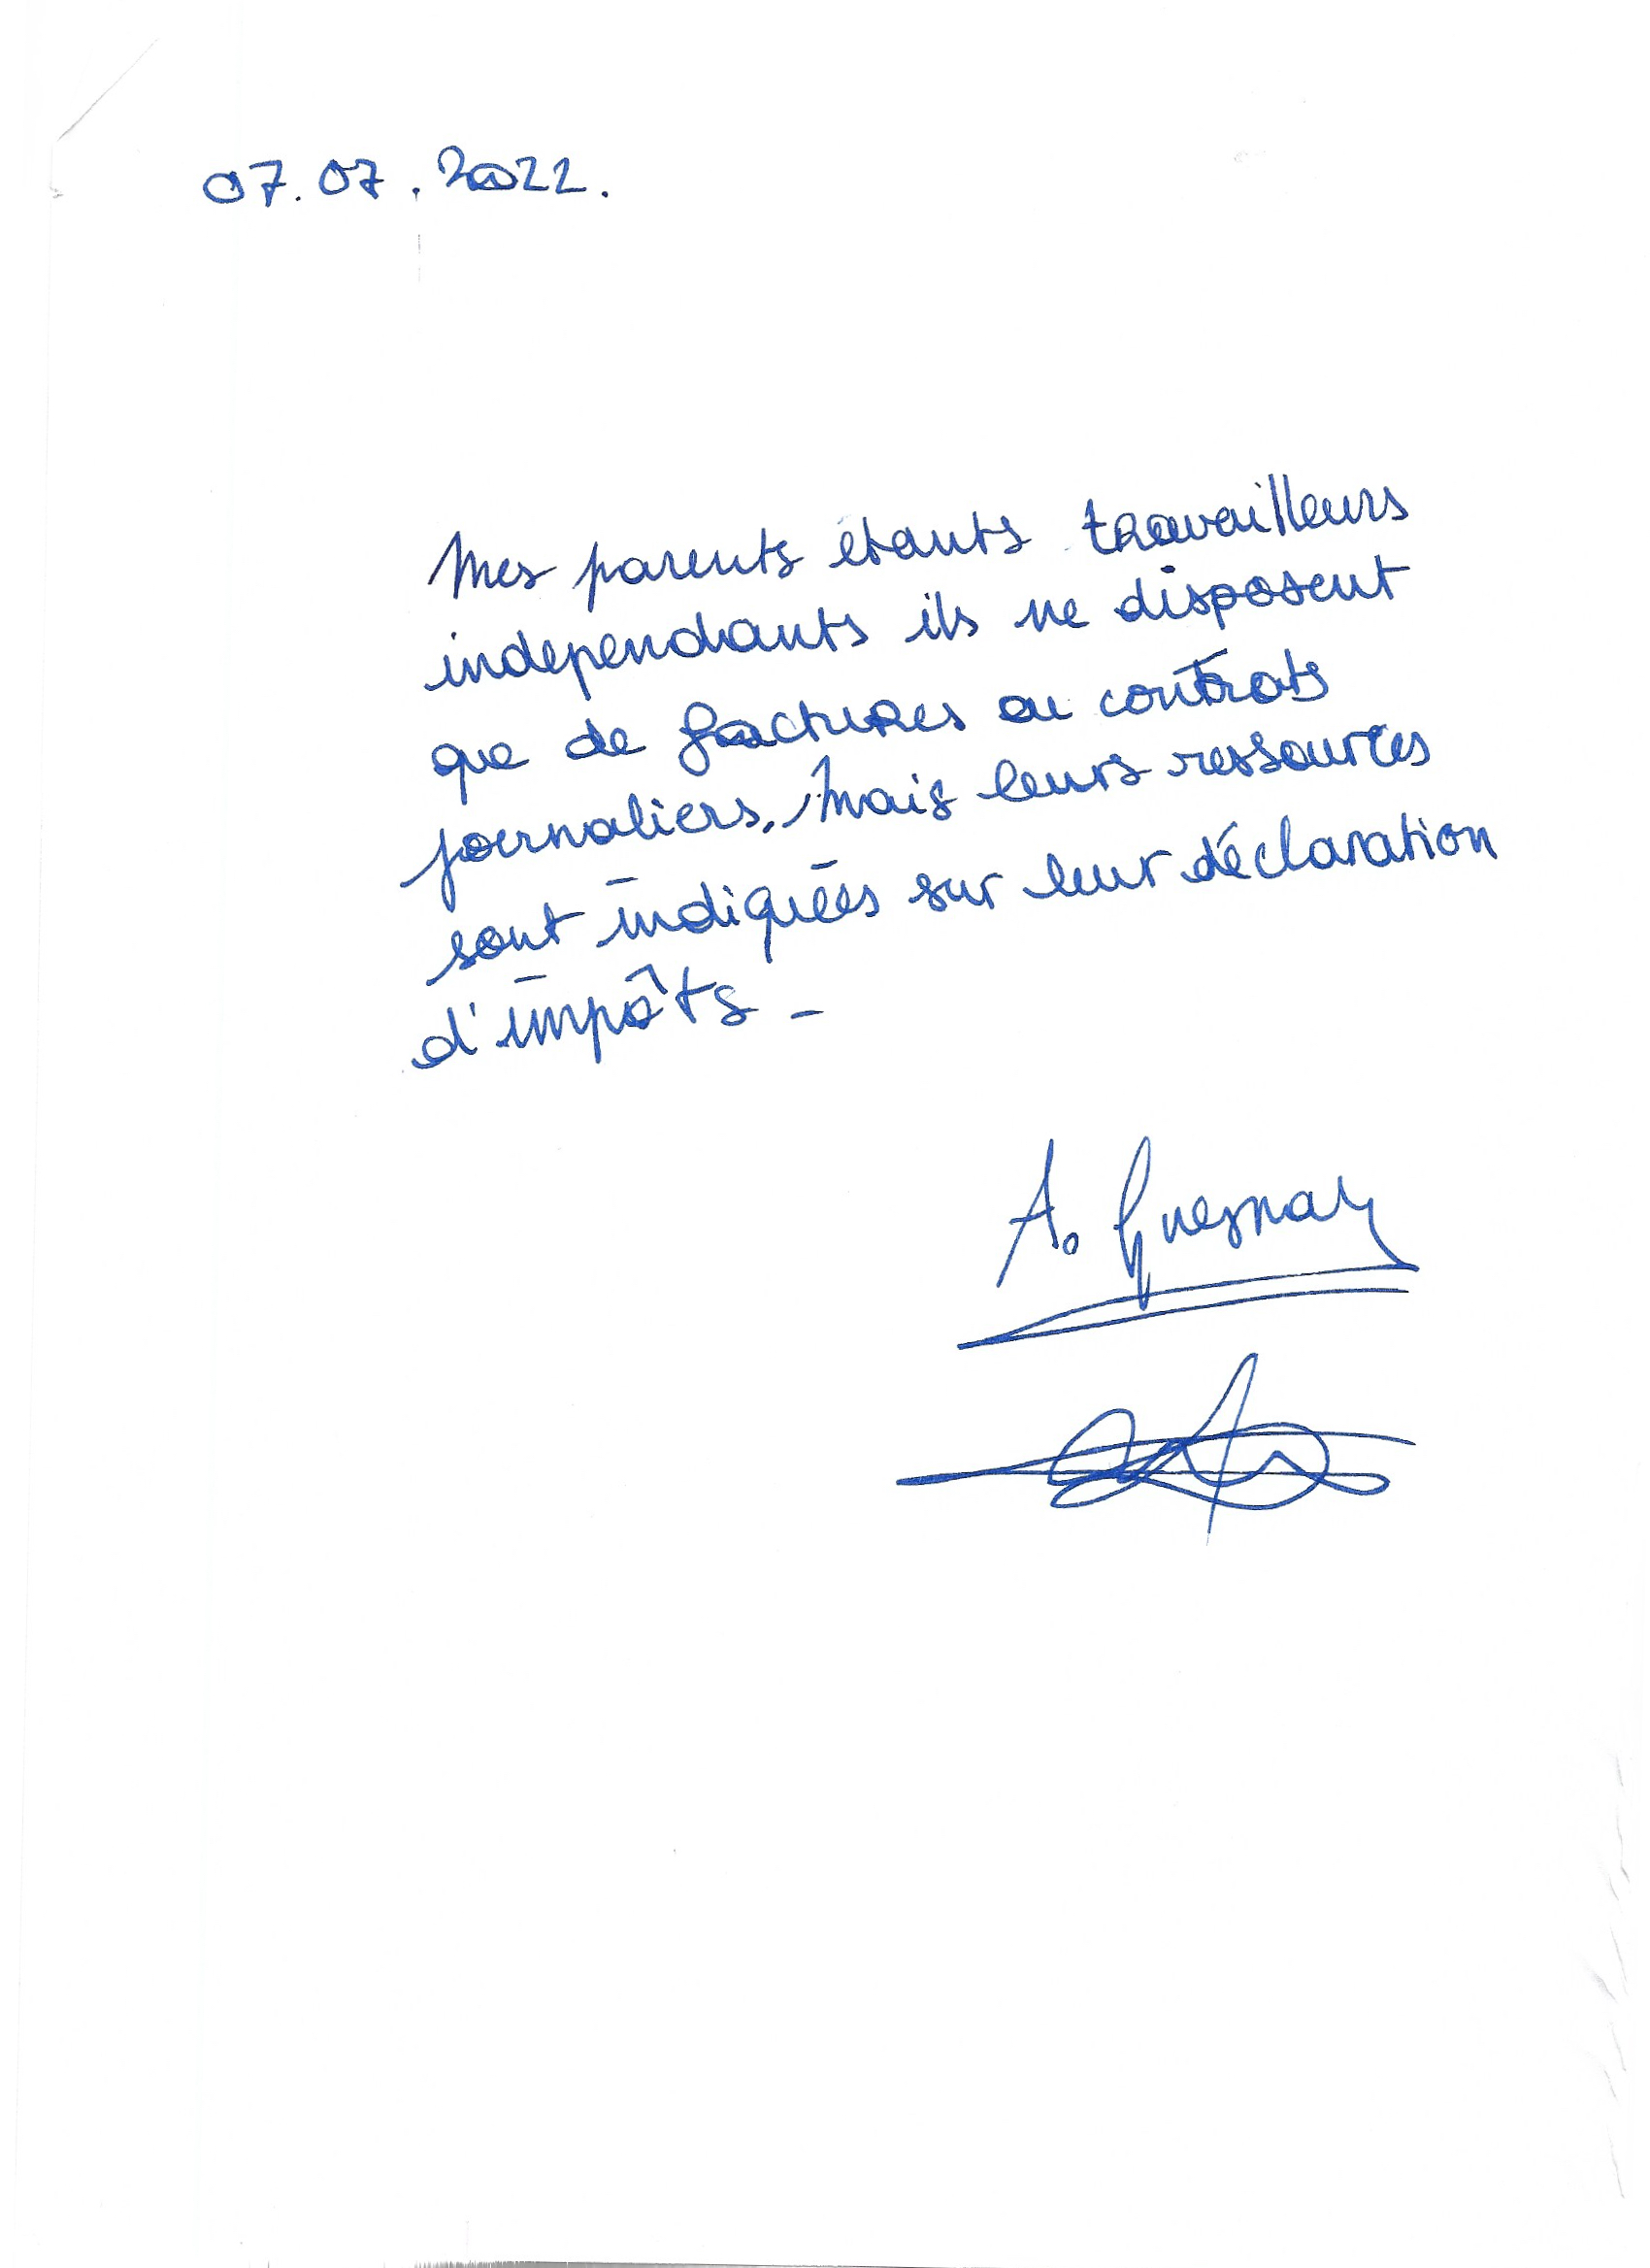 07.07.2022.
Mes parents étants travailleurs
independants ils ne disposent
que de factures ou contrats
journaliers. Mais leurs ressources
sont indiquées sur leur déclaration
d'impôts -
A. Quesnay